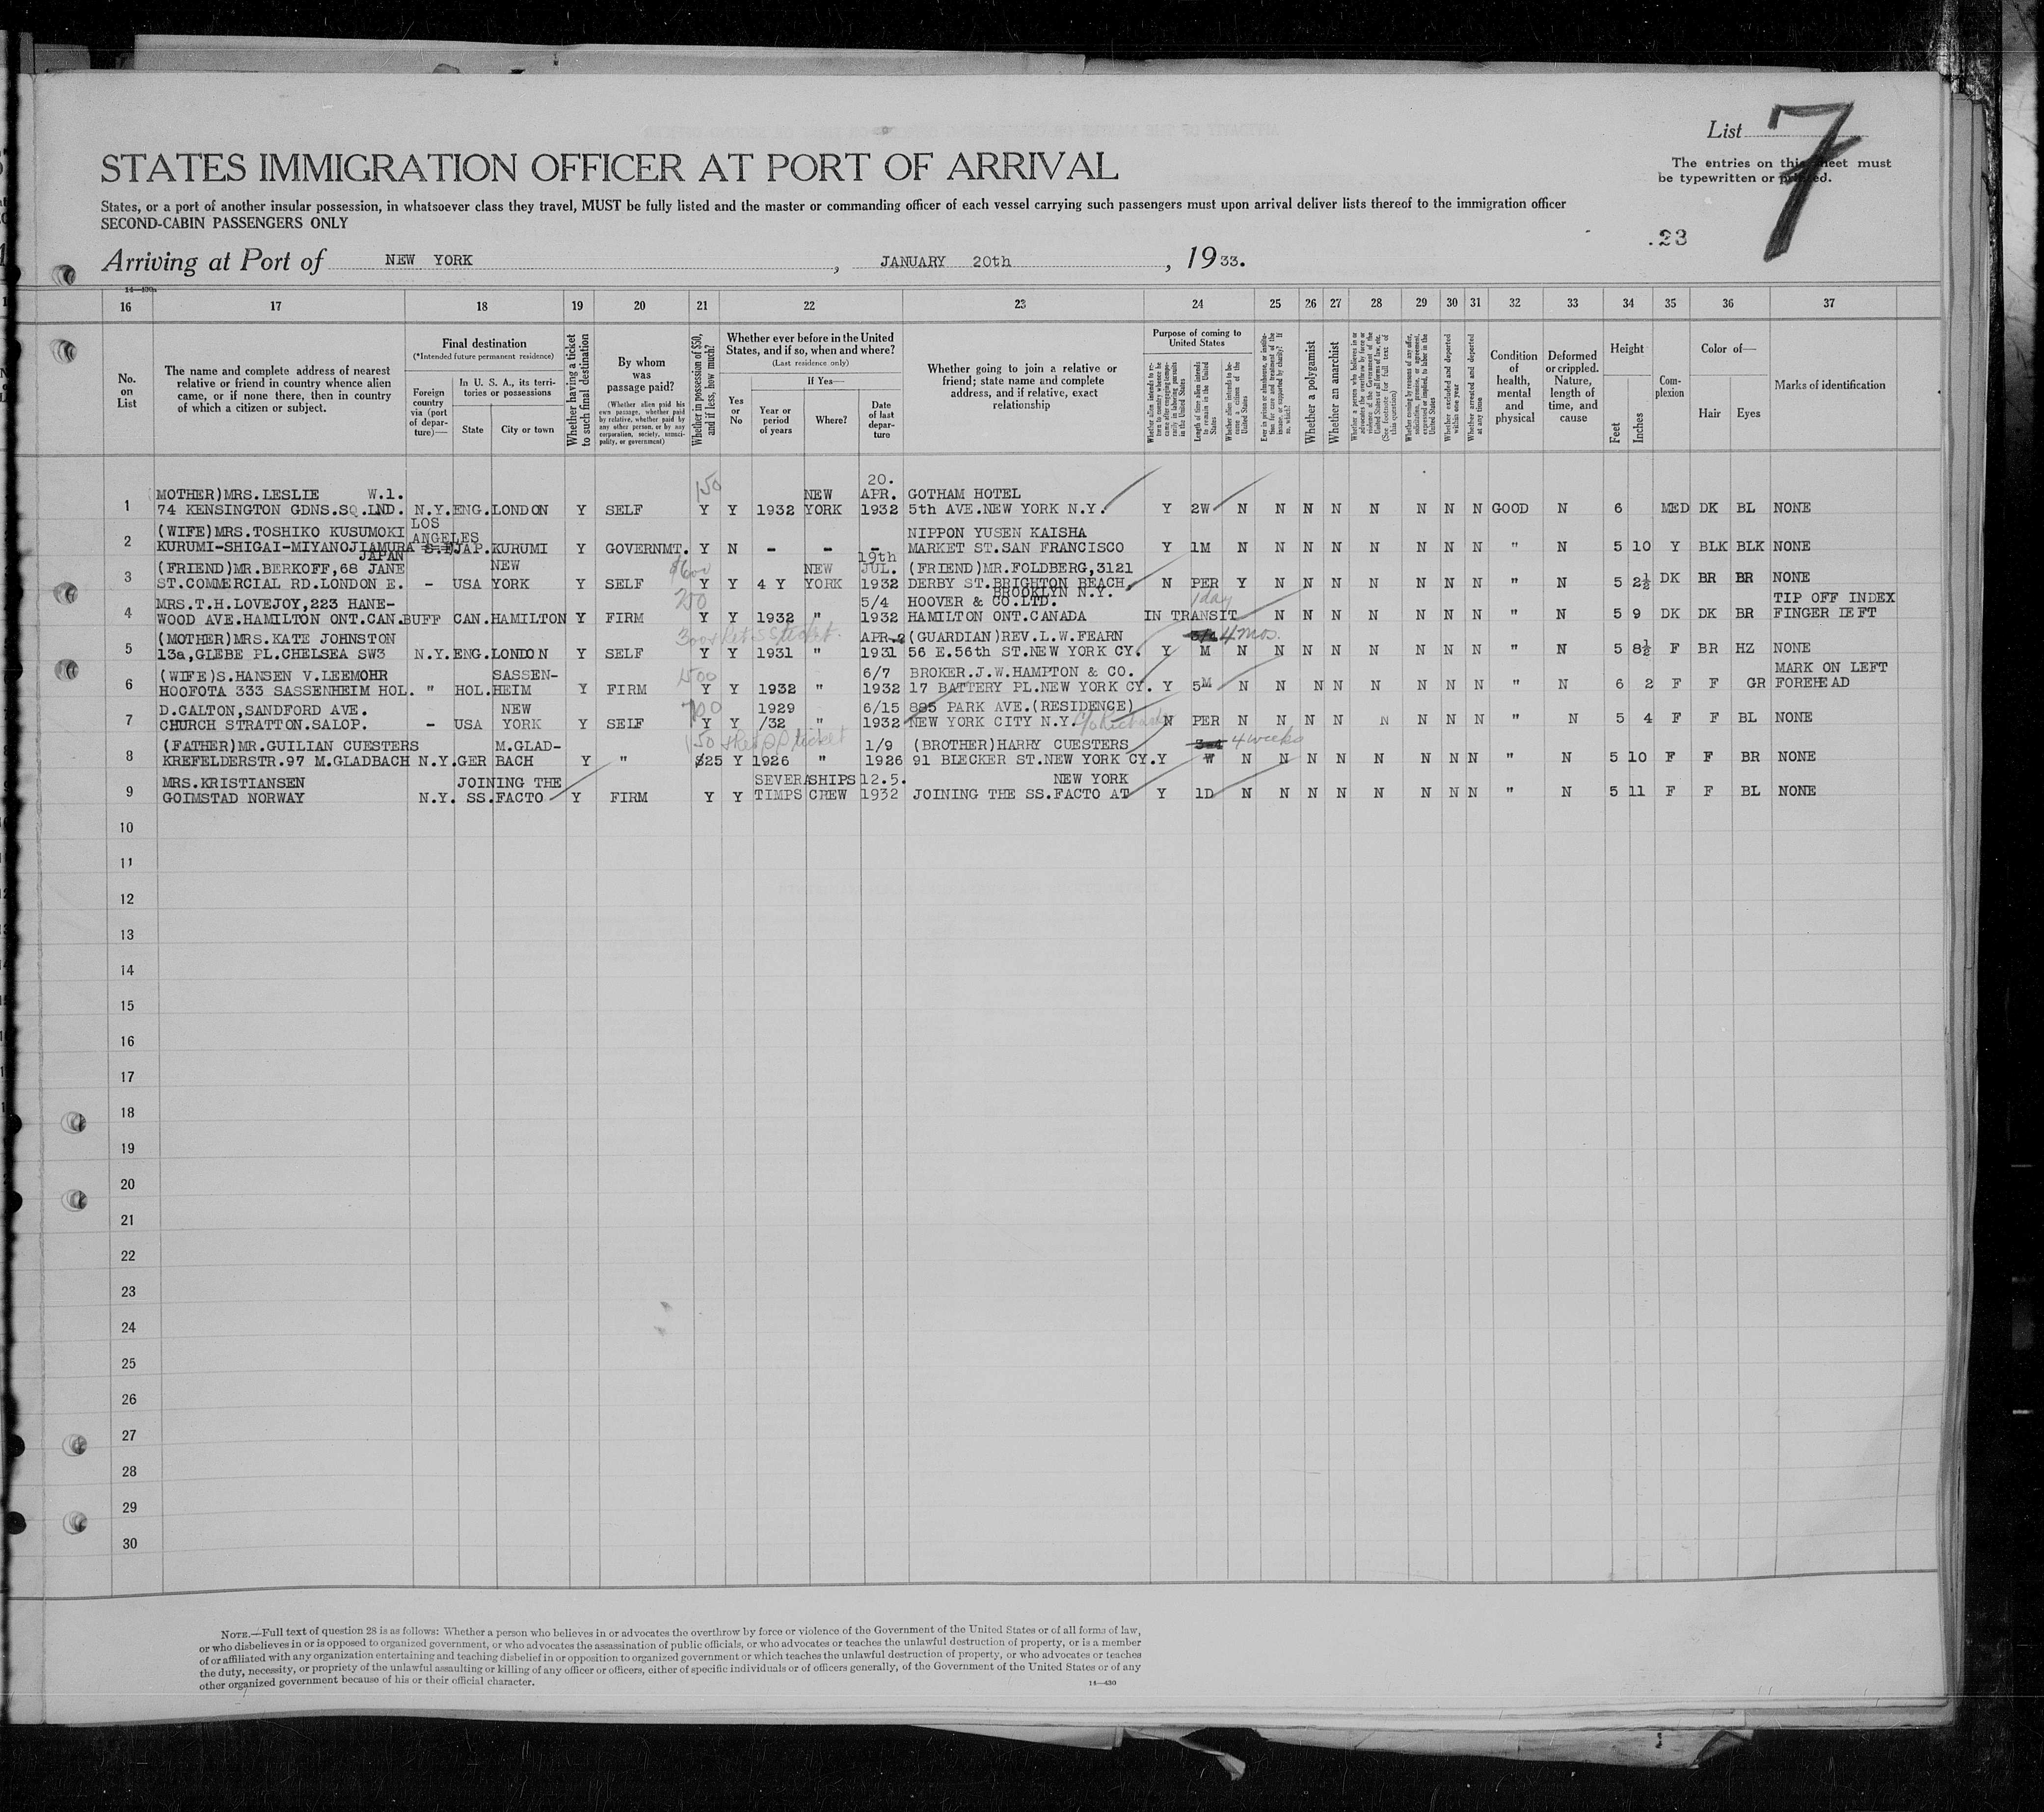 List 7
The entries on this sheet must
be typewritten or printed.
STATES IMMIGRATION OFFICER AT PORT OF ARRIVAL
States, or a port of another insular possession, in whatsoever class they travel, MUST be fully listed and the master or commanding officer of each vessel carrying such passengers must upon arrival deliver lists thereof to the immigration officer
SECOND-CABIN PASSENGERS ONLY
.23
Arriving at Port of NEW YORK, JANUARY 20th, 1933.
14—430a
16 17 18 19 20 21 22 23 24 25 26 27 28 29 30 31 32 33 34 35 36 37
No. on List
The name and complete address of nearest relative or friend in country whence alien came, or if none there, then in country of which a citizen or subject.
Final destination
(*Intended future permanent residence)
Foreign country via (port of departure)—
In U. S. A., its territories or possessions
State
City or town
Whether having a ticket to such final destination
By whom was passage paid?
(Whether alien paid his own passage, whether paid by relative, whether paid by any other person, or by any corporation, society, municipality, or government)
Whether in possession of $50, and if less, how much?
Whether ever before in the United States, and if so, when and where?
(Last residence only)
Yes or No
If Yes—
Year or period of years
Where?
Date of last departure
Whether going to join a relative or friend; state name and complete address, and if relative, exact relationship
Purpose of coming to United States
Length of time alien intends to remain in the United States
Whether alien intends to become a citizen of the United States
Whether a polygamist
Whether an anarchist
Whether excluded and deported within one year
Whether arrested and deported at any time
Condition of health, mental and physical
Deformed or crippled. Nature, length of time, and cause
Height
Feet
Inches
Complexion
Color of—
Hair
Eyes
Marks of identification
150 20.
MOTHER)MRS.LESLIE W.1. NEW APR. GOTHAM HOTEL
1 74 KENSINGTON GDNS.SQ.LND. N.Y. ENG. LONDON Y SELF Y Y 1932 YORK 1932 5th AVE.NEW YORK N.Y. Y 2W N N N N N N N N GOOD N 6 MED DK BL NONE
(WIFE)MRS.TOSHIKO KUSUMOKI LOS ANGELES NIPPON YUSEN KAISHA
2 KURUMI-SHIGAI-MIYANOJIAMURA S.F. JAP. KURUMI Y GOVERNMT. Y N - - - MARKET ST.SAN FRANCISCO Y 1M N N N N N N N N " N 5 10 Y BLK BLK NONE
JAPAN NEW 19th
(FRIEND)MR.BERKOFF,68 JANE $600 NEW JUL. (FRIEND)MR.FOLDBERG,3121
3 ST.COMMERCIAL RD.LONDON E. - USA YORK Y SELF Y Y 4 Y YORK 1932 DERBY ST.BRIGHTON BEACH, N PER Y N N N N N N N " N 5 2½ DK BR BR NONE
BROOKLYN N.Y.
MRS.T.H.LOVEJOY,223 HANE- 5/4 HOOVER & CO.LTD. 1 day TIP OFF INDEX
4 WOOD AVE.HAMILTON ONT.CAN. BUFF CAN. HAMILTON Y FIRM Y Y 1932 " 1932 HAMILTON ONT.CANADA IN TRANSIT N N N N N N N " N 5 9 DK DK BR FINGER LEFT
(MOTHER)MRS.KATE JOHNSTON APR.2 (GUARDIAN)REV.L.W.FEARN 4 mos.
5 13a,GLEBE PL.CHELSEA SW3 N.Y. ENG. LONDON Y SELF Y Y 1931 " 1931 56 E.56th ST.NEW YORK CY. Y M N N N N N N N N " N 5 8½ F BR HZ NONE
(WIFE)S.HANSEN V.LEEMOHR SASSEN- 1500 6/7 BROKER.J.W.HAMPTON & CO. MARK ON LEFT
6 HOOFOTA 333 SASSENHEIM HOL. " HOL. HEIM Y FIRM Y Y 1932 " 1932 17 BATTERY PL.NEW YORK CY. Y 5M N N N N N N N N " N 6 2 F F GR FOREHEAD
D.CALTON,SANDFORD AVE. NEW 700 1929 6/15 885 PARK AVE.(RESIDENCE)
7 CHURCH STRATTON.SALOP. - USA YORK Y SELF Y Y /32 " 1932 NEW YORK CITY N.Y. N PER N N N N N N N N " N 5 4 F F BL NONE
(FATHER)MR.GUILIAN CUESTERS M.GLAD- 150 ticket 1/9 (BROTHER)HARRY CUESTERS 4 weeks
8 KREFELDERSTR.97 M.GLADBACH N.Y. GER BACH Y " $25 Y 1926 " 1926 91 BLECKER ST.NEW YORK CY. Y W N N N N N N N N " N 5 10 F F BR NONE
MRS.KRISTIANSEN JOINING THE SEVERA SHIPS 12.5. NEW YORK
9 GOIMSTAD NORWAY N.Y. SS.FACTO Y FIRM Y Y TIMPS CREW 1932 JOINING THE SS.FACTO AT Y 1D N N N N N N N N " N 5 11 F F BL NONE
10
11
12
13
14
15
16
17
18
19
20
21
22
23
24
25
26
27
28
29
30
NOTE.—Full text of question 28 is as follows: Whether a person who believes in or advocates the overthrow by force or violence of the Government of the United States or of all forms of law,
or who disbelieves in or is opposed to organized government, or who advocates the assassination of public officials, or who advocates or teaches the unlawful destruction of property, or is a member
of or affiliated with any organization entertaining and teaching disbelief in or opposition to organized government or which teaches the unlawful destruction of property, or who advocates or teaches
the duty, necessity, or propriety of the unlawful assaulting or killing of any officer or officers, either of specific individuals or of officers generally, of the Government of the United States or of any
other organized government because of his or their official character.
14—430